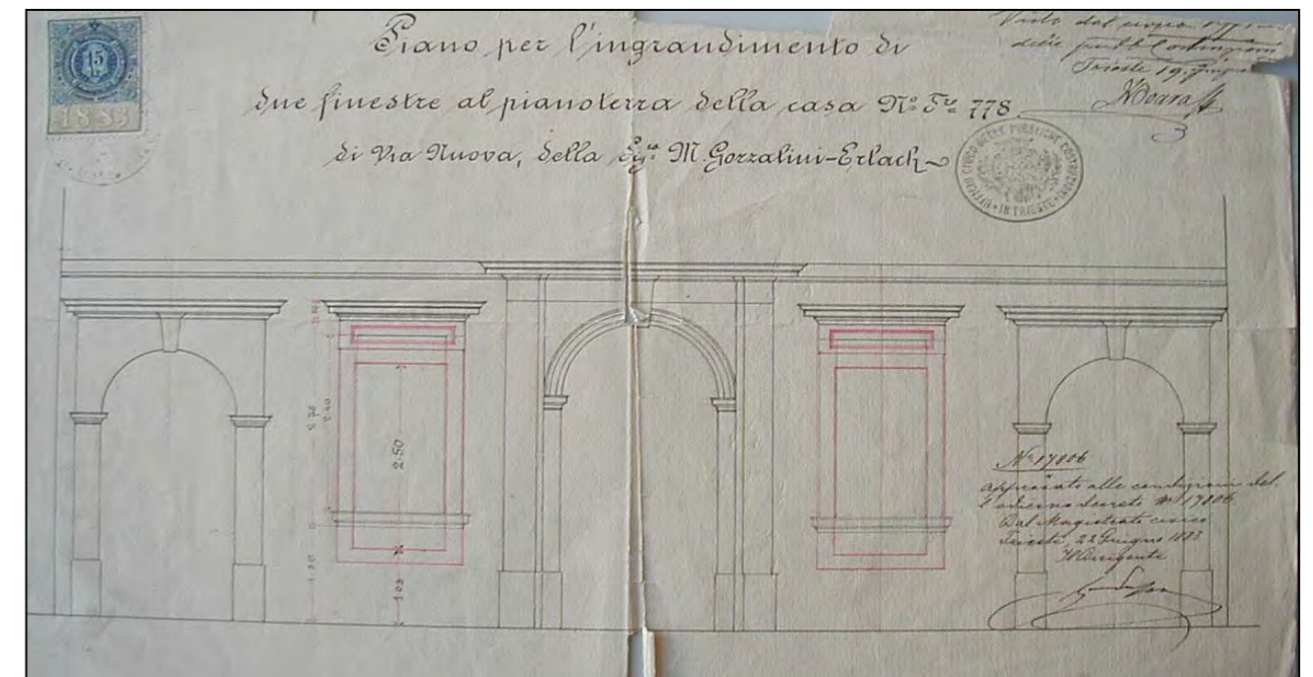 15
1883
Piano per l'ingrandimento di
due finestre al pianoterra della casa Nº Tre 778
di Via Nuova, della Sigra M. Gozzalini-Erlach
Visto dal civico
delle pubb. Costruzioni
Trieste 19 Giugno
UFFICIO CIVICO DELLE PUBBLICHE COSTRUZIONI IN TRIESTE
2.75
2.40
2.50
1.03
Nº 17806
Approvato alle condizioni del
l'odierno decreto Nº 17806.
Dal Magistrato civico
Trieste, 22 Giugno 1883
Il Dirigente